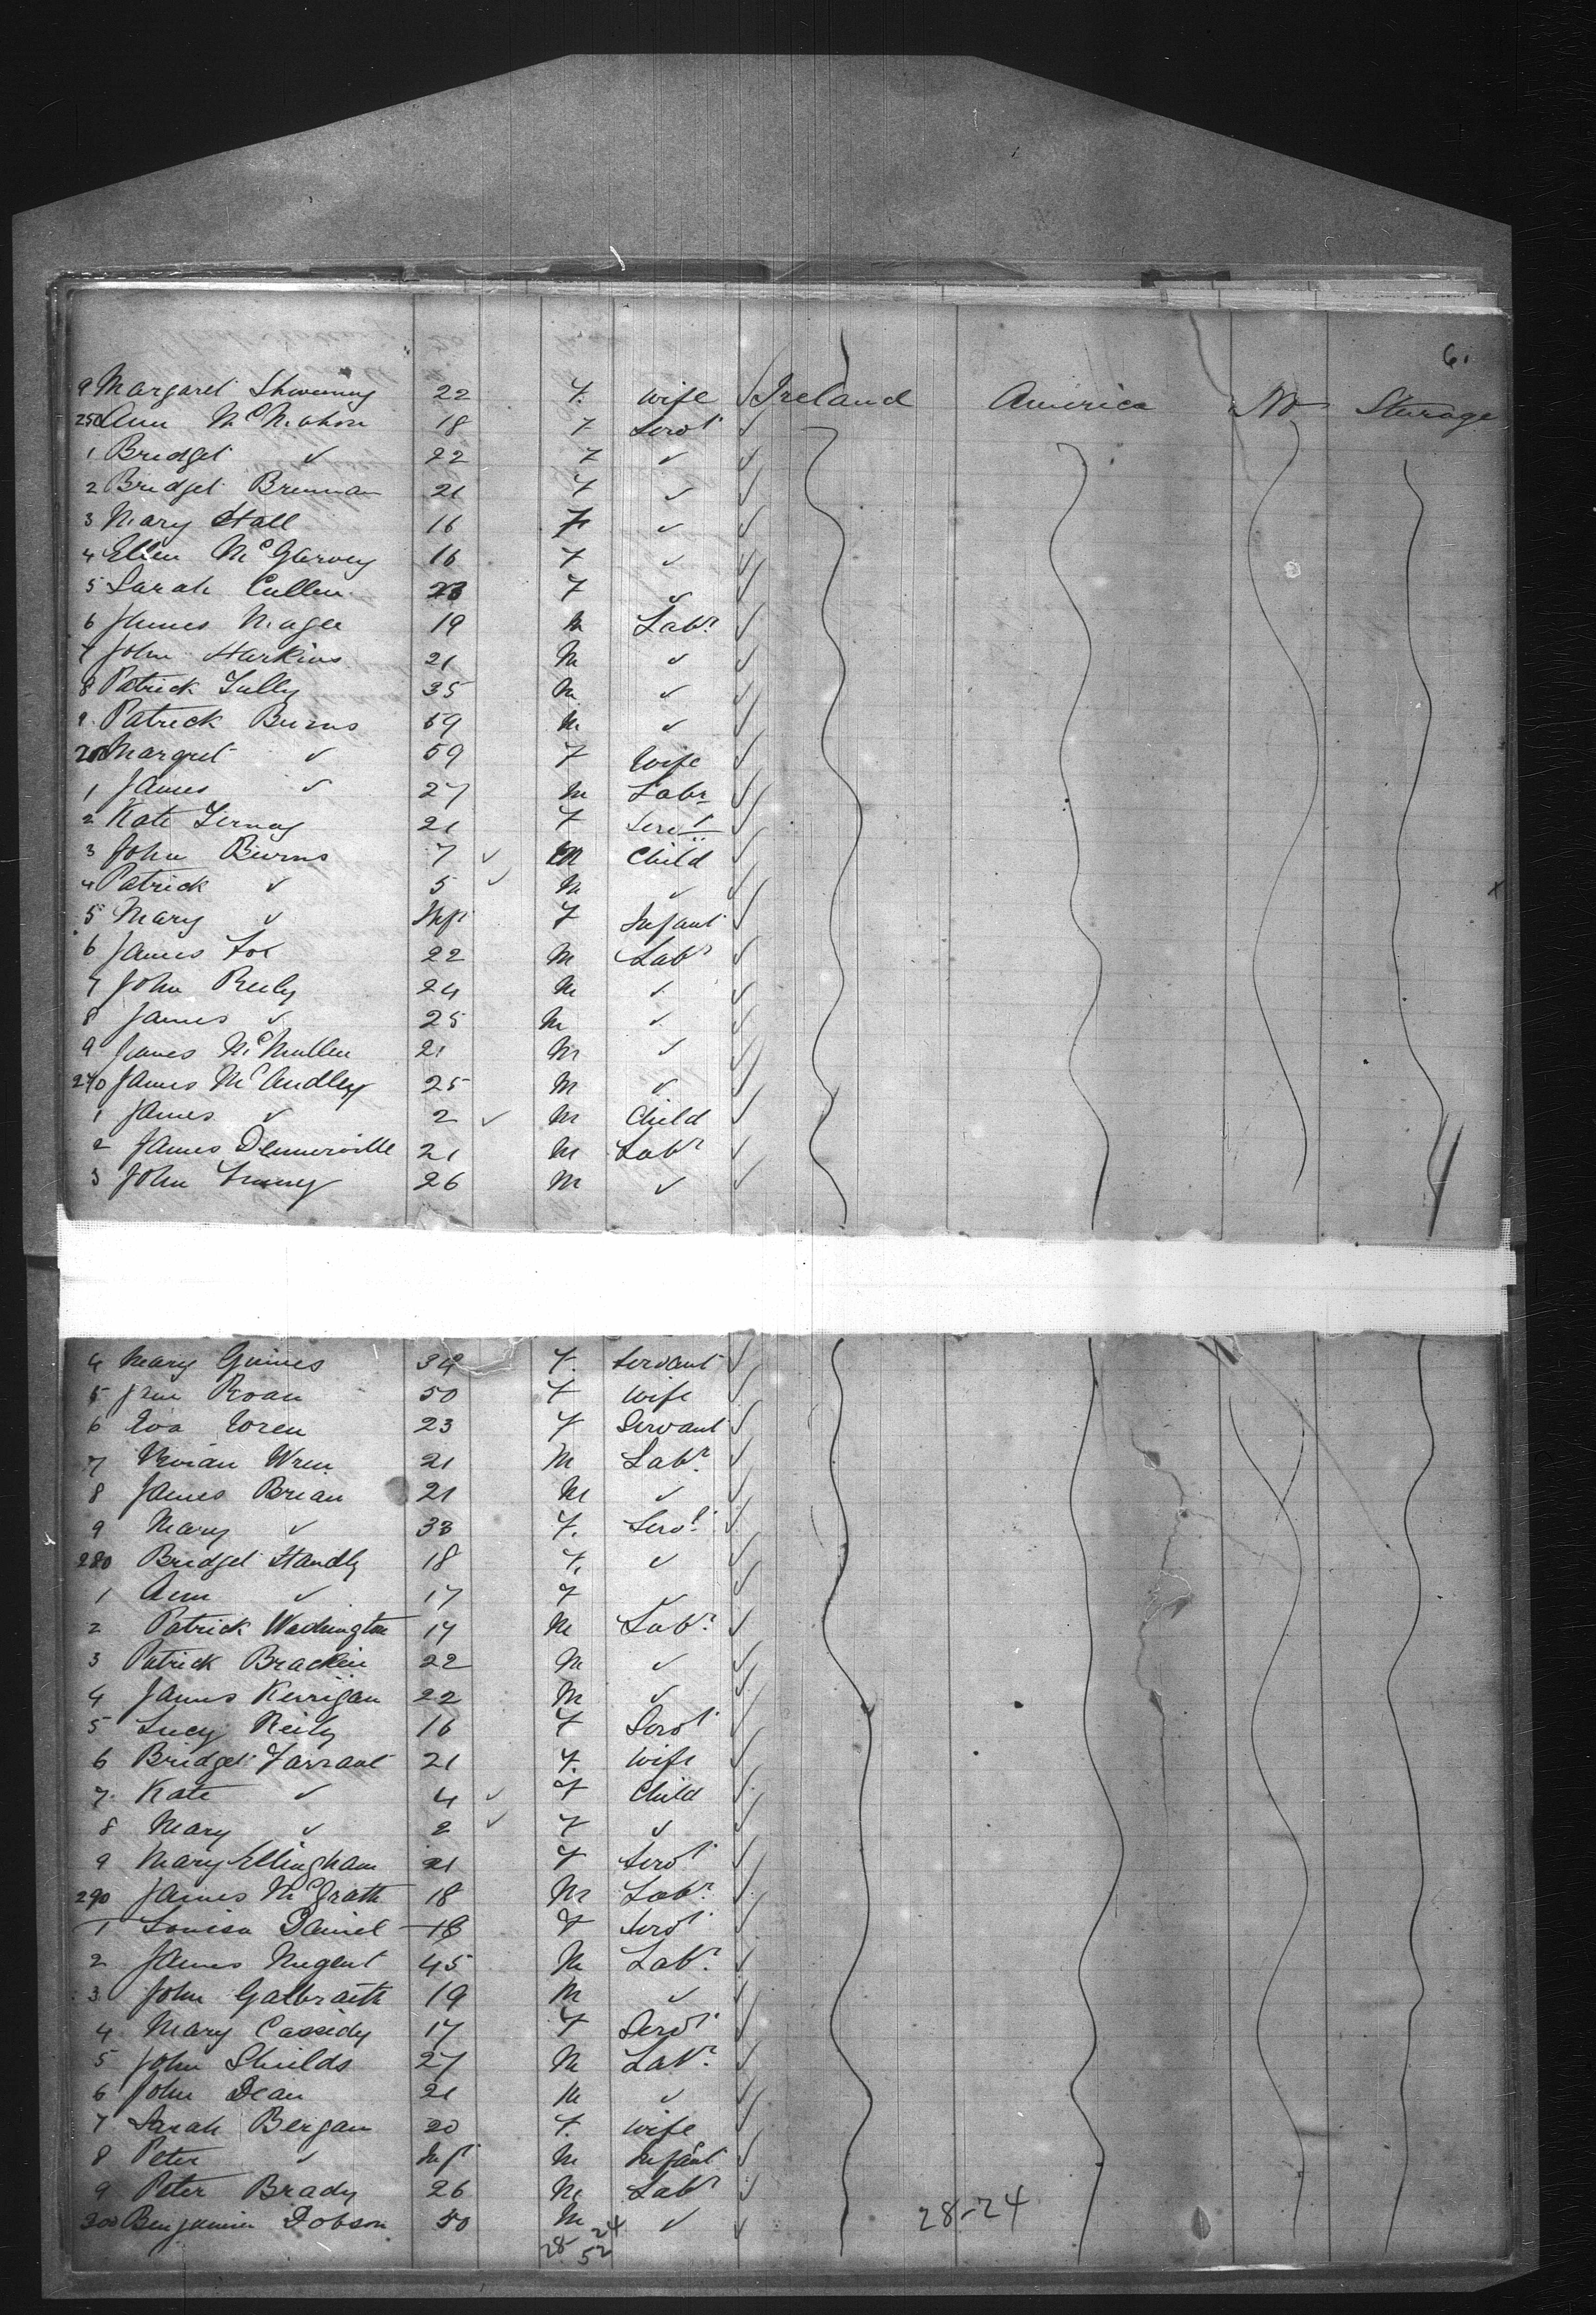 6.
9 Margaret 22 F. Wife ✓ Ireland America No Sterage
250 Ann McMahon 18 F Servt ✓
1 Bridget ✓ 22 F ✓ ✓
2 Bridget Brennan 21 F ✓ ✓
3 Mary Hall 16 F ✓ ✓
4 Ellen McGarvey 16 F ✓ ✓
5 Sarah Cullen 23 F ✓ ✓
6 James Magee 19 M Labr ✓
7 John Harkins 21 M ✓ ✓
8 Patrick Tully 35 M ✓ ✓
9 Patrick Burns 59 M ✓ ✓
260 Margret ✓ 59 F Wife ✓
1 James ✓ 27 M Labr ✓
2 Kate 21 F Servt ✓
3 John Burns 7 ✓ M Child ✓
4 Patrick ✓ 5 ✓ M ✓ ✓
5 Mary ✓ Inft F Infant ✓
6 James Fox 22 M Labr ✓
7 John Reily 24 M ✓ ✓
8 James ✓ 25 M ✓ ✓
9 James McMullen 21 M ✓ ✓
270 James McAndley 25 M ✓ ✓
1 James ✓ 2 ✓ M Child ✓
2 James Dennerville 21 M Labr ✓
3 John 26 M ✓ ✓
4 Mary Guines 34 F. Servant ✓
5 Jane Roan 50 F Wife ✓
6 Eva Wren 23 F Servant ✓
7 Vivian Wren 21 M Labr ✓
8 James Brian 21 M ✓ ✓
9 Mary ✓ 33 F. Servt ✓
280 Bridget Handly 18 F. ✓ ✓
1 Ann ✓ 17 F ✓ ✓
2 Patrick Washington 17 M Labr ✓
3 Patrick Bracken 22 M ✓ ✓
4 James Kerrigan 22 M ✓ ✓
5 Lucy Reily 16 F Servt ✓
6 Bridget Farrant 21 F. Wife ✓
7 Kate ✓ 4 ✓ F Child ✓
8 Mary ✓ 2 ✓ F ✓ ✓
9 Mary Ellingham 21 F Servt ✓
290 James McGrath 18 M Labr ✓
1 Louisa Daniel 18 F Servt ✓
2 James Nugent 45 M Labr ✓
3 John Galbraith 19 M ✓ ✓
4 Mary Cassidy 17 F Servt ✓
5 John Shields 27 M Labr ✓
6 John Dean 21 M ✓ ✓
7 Sarah Bergan 20 F. Wife ✓
8 Peter ✓ Inft M Infant ✓
9 Peter Brady 26 M Labr ✓
300 Benjamin Dobson 50 M ✓ ✓
28 24 52
28-24